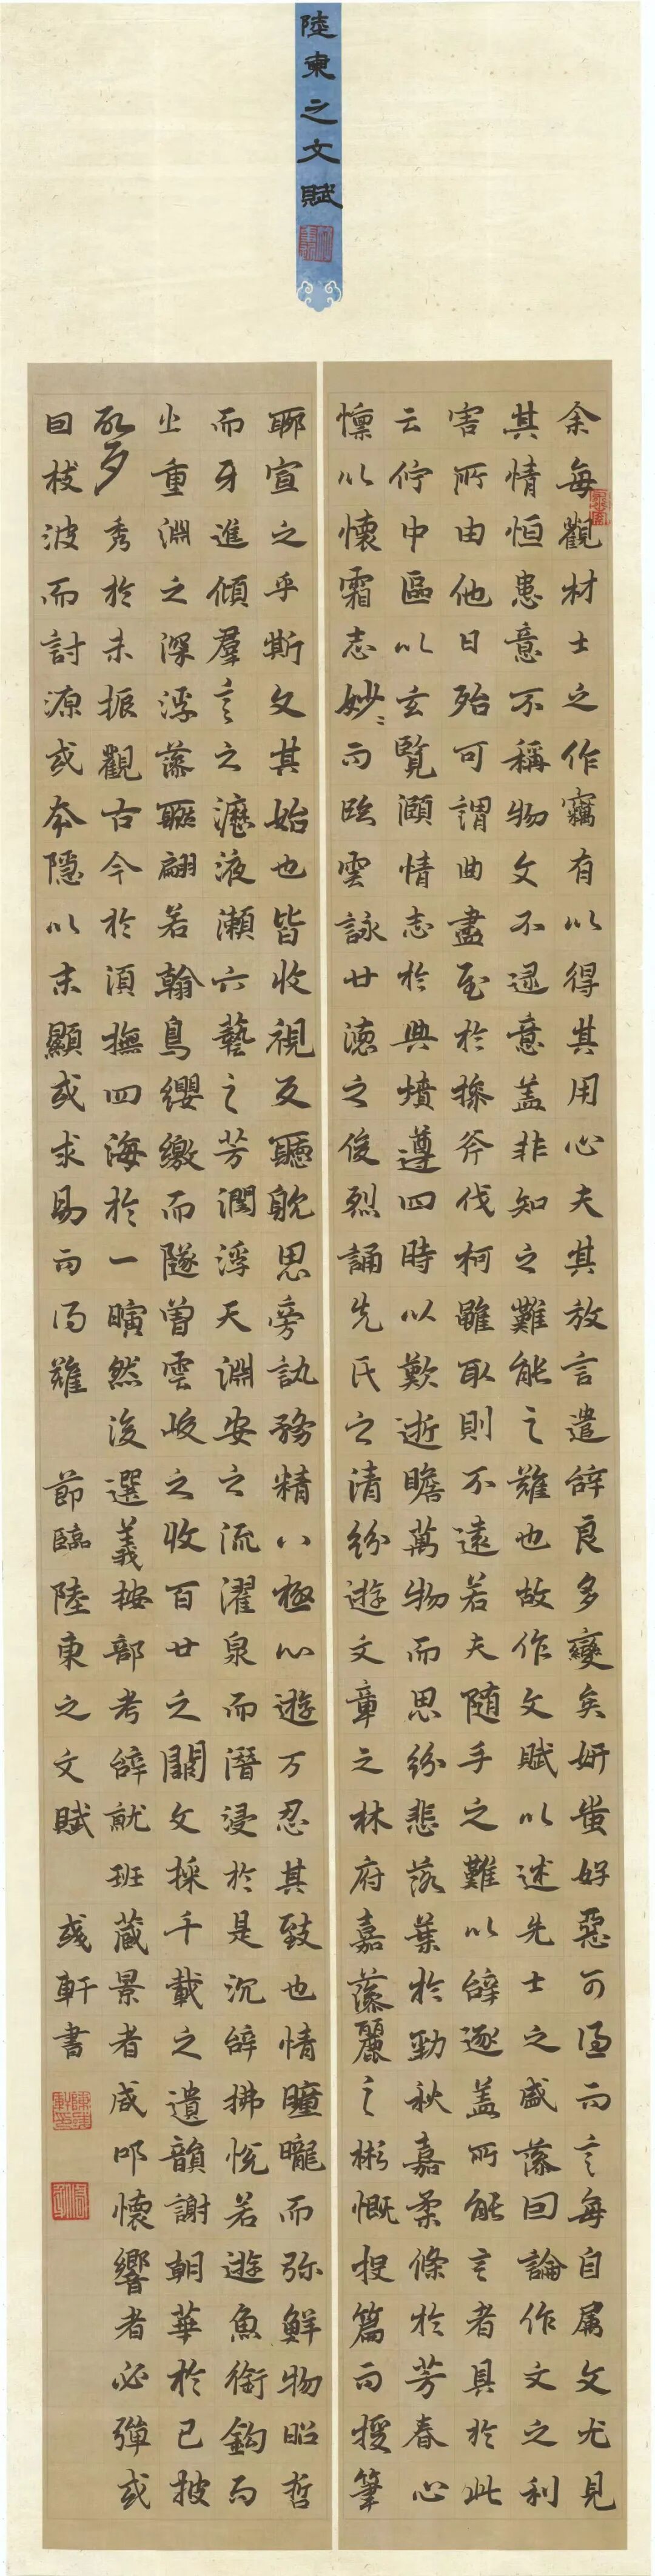 陸柬之文賦
余每觀材士之作竊有以得其用心夫其放言遣辭良多變矣妍蚩好惡可得而言每自属文尤見
其情恒患意不稱物文不逮意盖非知之難能之難也故作文賦以述先士之盛藻因論作文之利
害所由他日殆可謂曲盡至於操斧伐柯雖取則不遠若夫随手之難以辭逐盖所能言者具於此
云佇中區以玄覽頤情志於典墳遵四時以歎逝瞻萬物而思紛悲落葉於勁秋嘉柔條於芳春心
懍以懷霜志妙〻而臨雲詠廿德之俊烈誦先氏之清紛遊文章之林府嘉藻麗之彬慨投篇而援筆
聊宣之乎斯文其始也皆收視反聽躭思旁訊務精八極心遊万忍其致也情曈曨而弥鮮物昭哲
而牙進傾羣言之瀝液漱六藝之芳潤浮天淵安之流濯泉而潛浸於是沉辭拂悅若遊魚銜鈎而
出重淵之深浮藻聯翩若翰鳥纓繳而墜曾雲峻之收百廿之闕文採千載之遺韻謝朝華於已披
啟夕秀於未振觀古今於湏撫四海於一瞚然後選義按部考辭就班藏景者咸叩懷響者必彈或
因枝波而討源或本隱以末顯或求易而得難 節臨陸柬之文賦 彧軒書